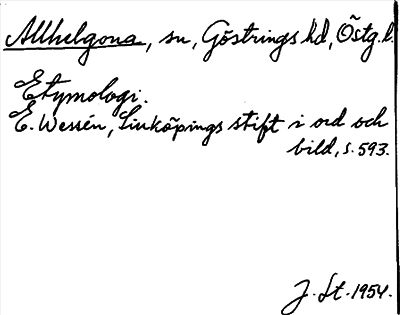 Allhelgona, sn, Göstrings hd, Östg.l.
Etymologi.
E. Wessén, Linköpings stift i ord och
bild, s. 593.
J. St. 1954.